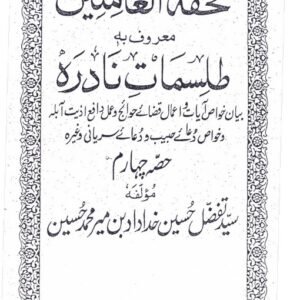 تحفۃ العاملین
معروف بہ
طلسمات نادرہ
بیان خواص آیات و اعمال قضائے حوائج و عمل دافع اذیت آبلہ
وخواص دُعائے حبیب و دُعائے سریانی وغیرہ
حصہ چہارم
مؤلفہ
سیّد تفضل حسین خداداد بن میر محمد حسین